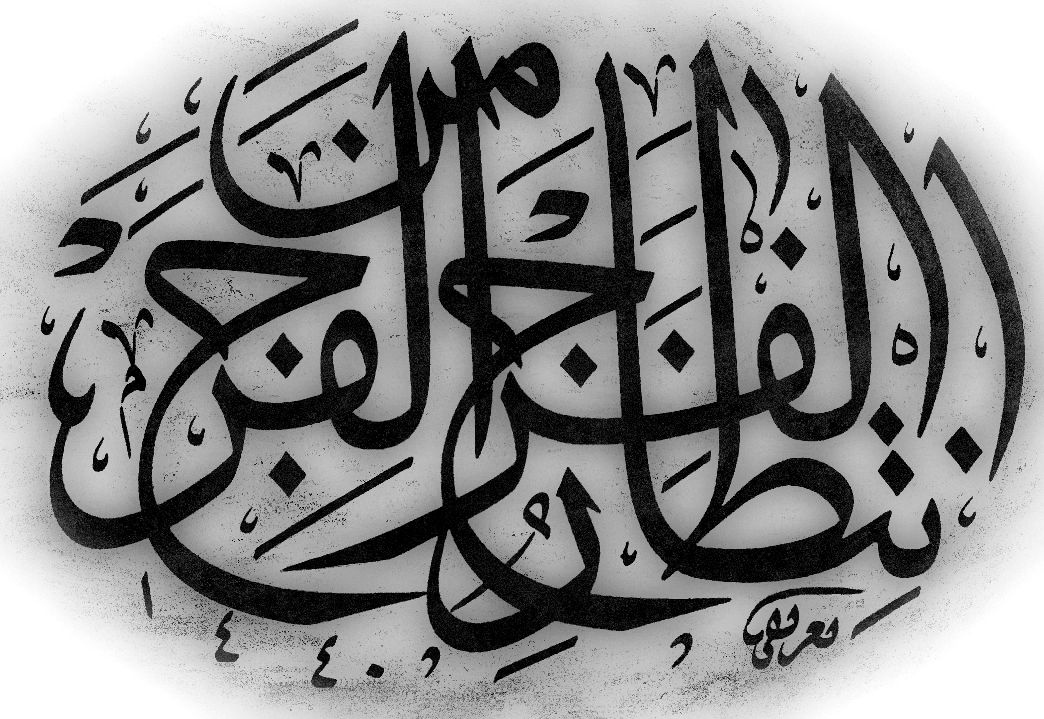 انتظار الفرج من الفرج
معروفي
١٤٤٠